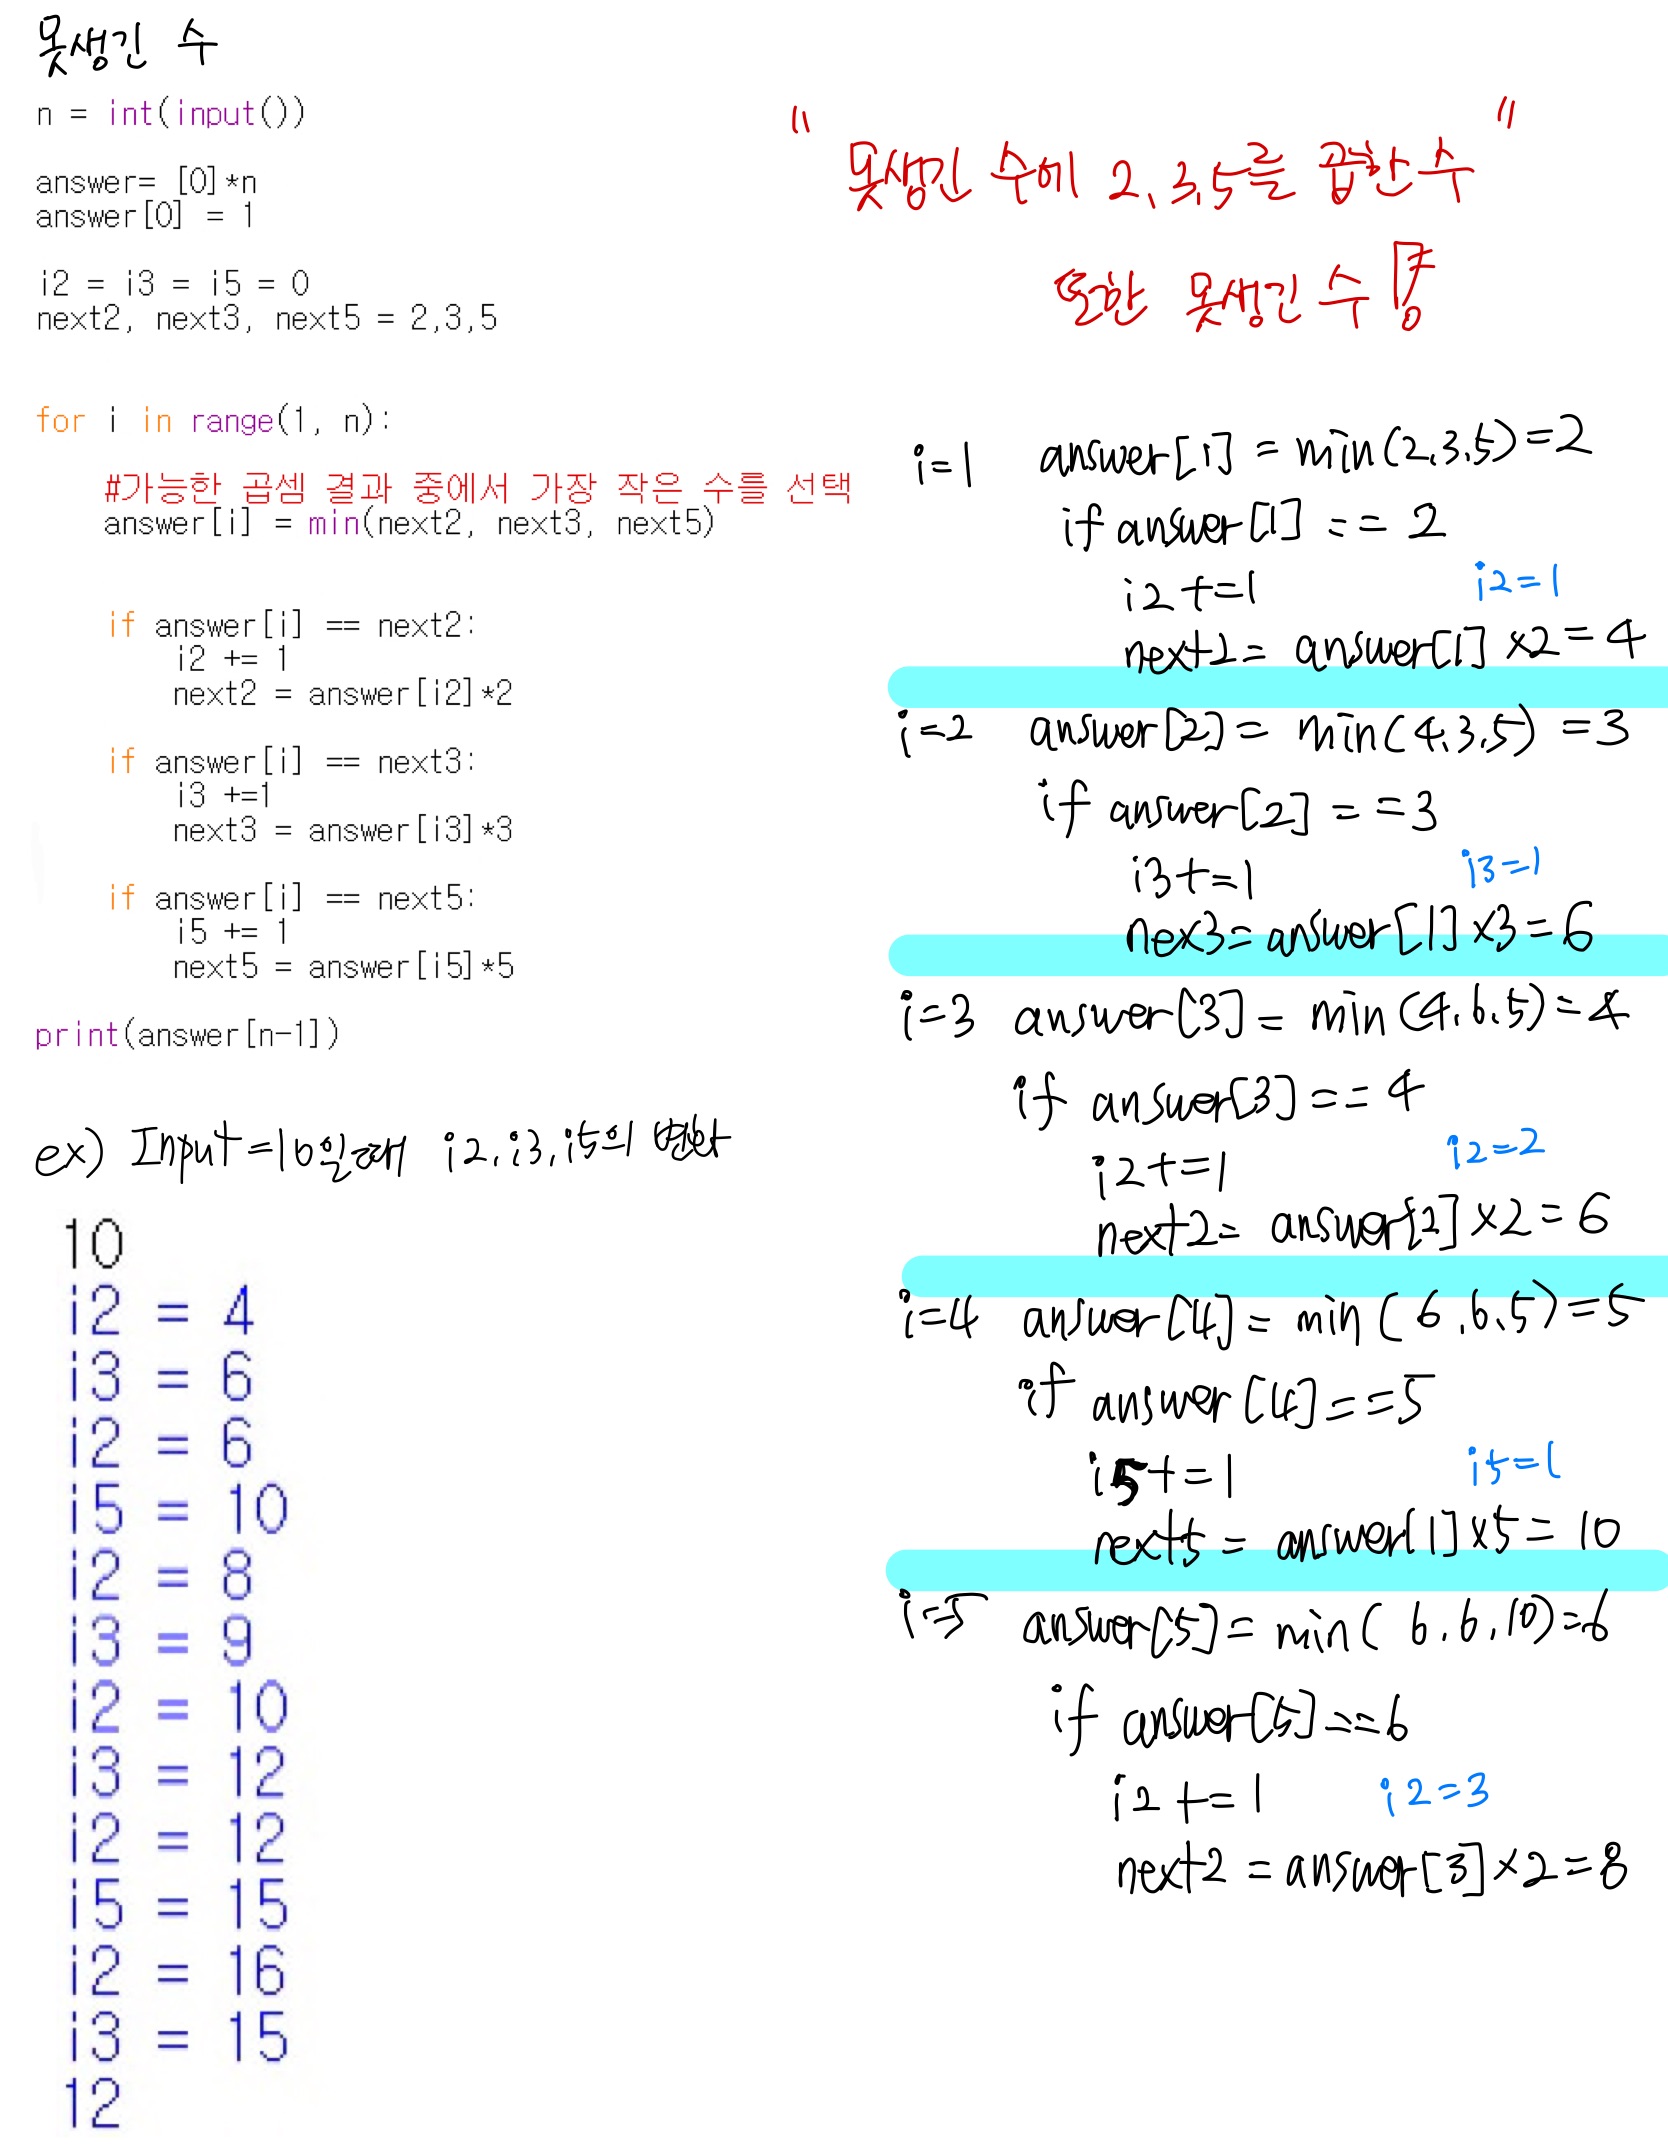 못생긴 수
n = int(input())
answer= [0]*n
answer[0] = 1
i2 = i3 = i5 = 0
next2, next3, next5 = 2,3,5
for i in range(1, n):
#가능한 곱셈 결과 중에서 가장 작은 수를 선택
answer[i] = min(next2, next3, next5)
if answer[i] == next2:
i2 += 1
next2 = answer[i2]*2
if answer[i] == next3:
i3 +=1
next3 = answer[i3]*3
if answer[i] == next5:
i5 += 1
next5 = answer[i5]*5
print(answer[n-1])
ex) Input=10일때 i2, i3, i5의 변화
10
i2 = 4
i3 = 6
i2 = 6
i5 = 10
i2 = 8
i3 = 9
i2 = 10
i3 = 12
i2 = 12
i5 = 15
i2 = 16
i3 = 15
12
"못생긴 수에 2, 3, 5를 곱한 수"
또한 못생긴 수!
i=1 answer[1] = min(2,3,5)=2
if answer[1] == 2
i2 +=1 i2=1
next2= answer[1] ×2=4
i=2 answer[2]= min(4,3,5) =3
if answer[2] ==3
i3+=1 i3=1
nex3=answer[1]×3=6
i=3 answer[3]= min(4,6,5)=4
if answer[3]==4
i2+=1 i2=2
next2= answer[2]×2=6
i=4 answer[4]= min(6,6,5)=5
if answer[4]==5
i5+=1 i5=1
next5= answer[1]×5= 10
i=5 answer[5]= min(6,6,10)=6
if answer[5]==6
i2 +=1 i2=3
next2 =answer[3]×2=8